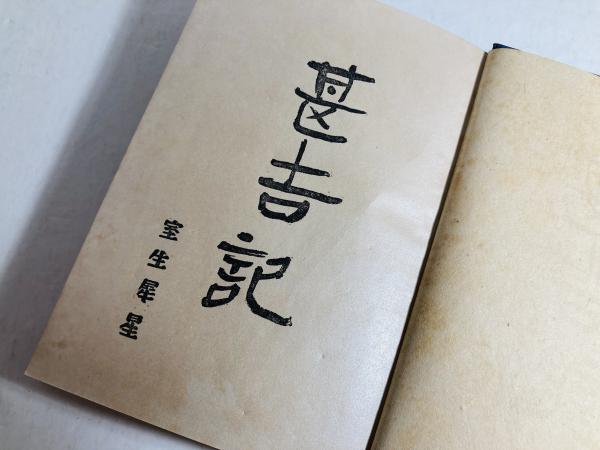 甚吉記
室生犀星